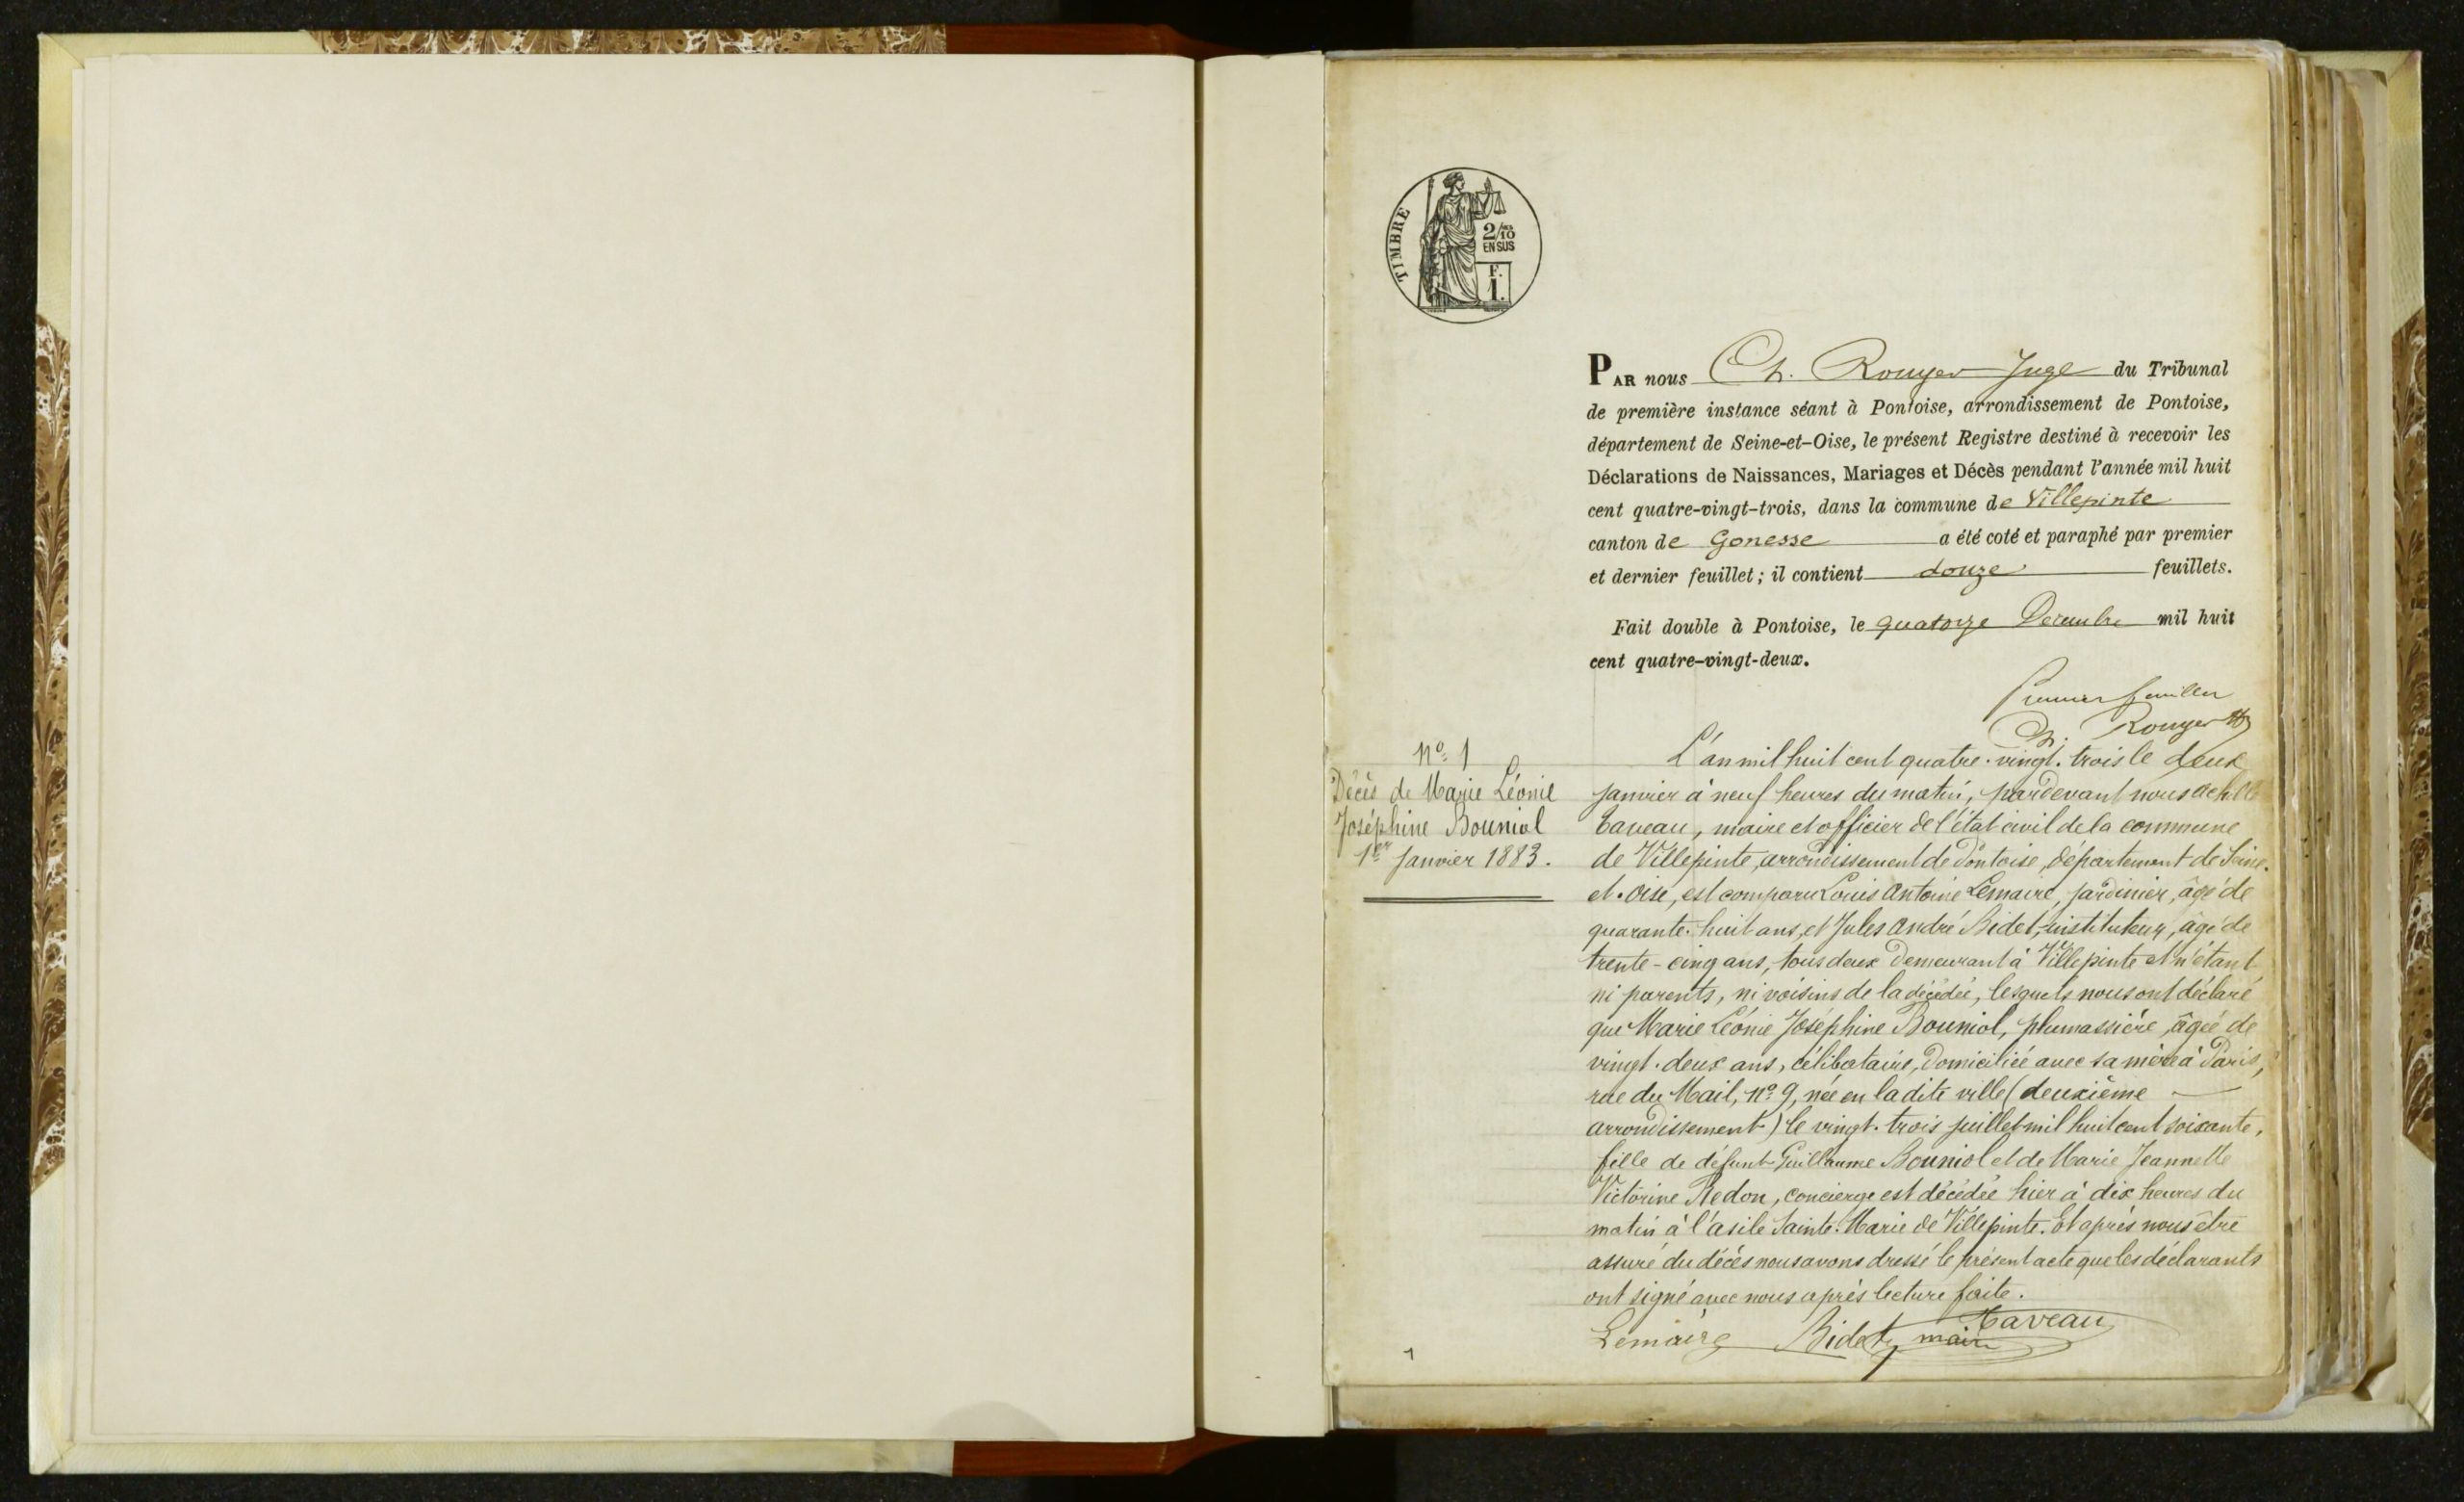 TIMBRE
2/10
EN SUS
F.
1.
PAR nous Ch. Rouyer Juge du Tribunal
de première instance séant à Pontoise, arrondissement de Pontoise,
département de Seine-et-Oise, le présent Registre destiné à recevoir les
Déclarations de Naissances, Mariages et Décès pendant l'année mil huit
cent quatre-vingt-trois, dans la commune de Villepinte
canton de Gonesse a été coté et paraphé par premier
et dernier feuillet ; il contient douze feuillets.
Fait double à Pontoise, le quatorze Décembre mil huit
cent quatre-vingt-deux.
Premier feuillet
Ch. Rouyer
N° 1
Décès de Marie Léonie
Joséphine Bouniol
1er Janvier 1883.
L'an mil huit cent quatre-vingt-trois le deux
janvier à neuf heures du matin, pardevant nous Achille
Taveau, maire et officier de l'état civil de la commune
de Villepinte, arrondissement de Pontoise, département de Seine-
et-Oise, est comparu Louis Antoine Lemaire, jardinier, âgé de
quarante-huit ans, et Jules André Bidet, instituteur, âgé de
trente-cinq ans, tous deux demeurant à Villepinte et n'étant
ni parents, ni voisins de la décédée, lesquels nous ont déclaré
que Marie Léonie Joséphine Bouniol, plumassière, âgée de
vingt-deux ans, célibataire, domiciliée avec sa mère à Paris,
rue du Mail, N° 9, née en la dite ville (deuxième
arrondissement) le vingt-trois juillet mil huit cent soixante,
fille de défunt Guillaume Bouniol et de Marie Jeannette
Victorine Redon, concierge est décédée hier à dix heures du
matin à l'asile Sainte-Marie de Villepinte. Et après nous être
assuré du décès nous avons dressé le présent acte que les déclarants
ont signé avec nous après lecture faite.
Lemaire Bidet Taveau
maire
1